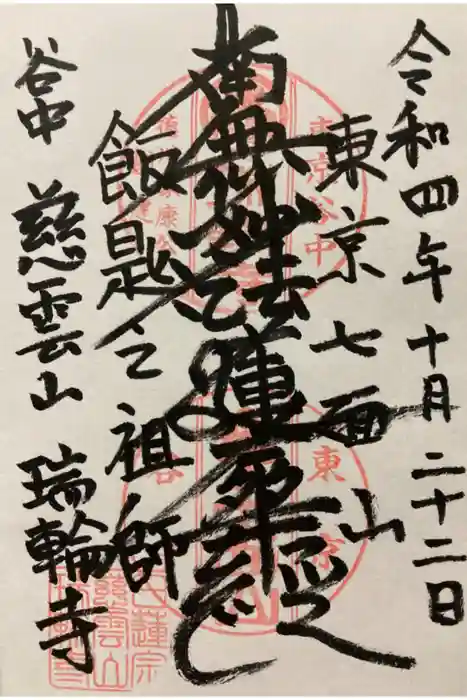 令和四年十月二十二日
東京七面山
南無妙法蓮華経
飯匙之祖師
谷中 慈雲山 瑞輪寺
東京谷中